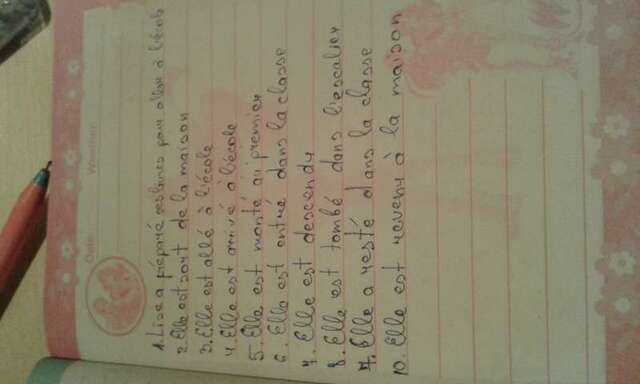 Date: Weather:
1. Lise a préparé ses livres pour aller à l'école
2. Elle est sort de la maison
3. Elle est allé à l'école
4. Elle est arrivé à l'école
5. Elle est monté au premier
6. Elle est entré dans la classe
7. Elle est descendu
8. Elle est tombé dans l'escalier
7. Elle a resté dans la classe
10. Elle est revenu à la maison